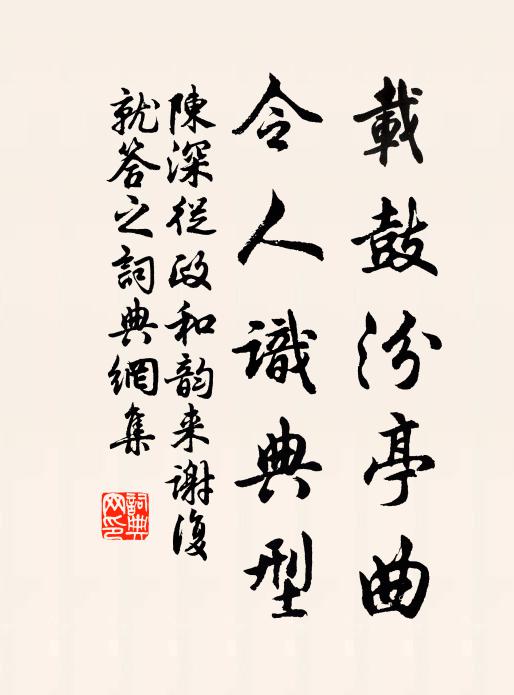 載鼓汾亭曲
令人識典型
陳深從政和韵来謝復
就答之詞典網集
詞典
网印